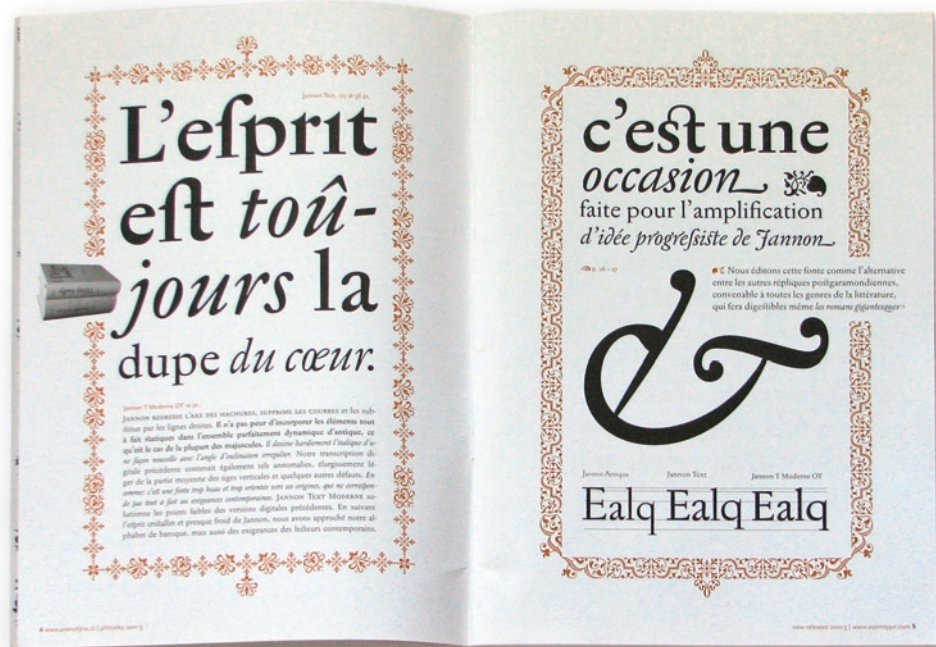 Jannon Text, 127 & 58 pt.
L’eſprit
eſt toû-
jours la
dupe du cœur.
Jannon T Moderne OT 10 pt.
JANNON REDRESSE L’AXE DES HACHURES, SUPPRIME LES COURBES et les sub-
stitue par les lignes droites. Il n’a pas peur d’incorporer les éléments tout
à fait statiques dans l’ensemble parfaitement dynamique d’antique, ce
qu’eſt le cas de la plupart des majuscules. Il deſsine hardiement l’italique d’u-
ne façon nouvelle avec l’angle d’inclinaison irregulier. Notre transcription di-
gitale précédente contenait également tels annomalies, élargissement lé-
ger de la partie moyenne des tiges verticales et quelques autres défauts. En
somme: c’eſt une fonte trop beau et trop orientée vers ses origines, qui ne correſpon-
de pas tout à fait au exigences contemporaines. JANNON TEXT MODERNE so-
lutionne les points faibles des versions digitales précédentes. En suivant
l’eſprit criſtallin et preſque froid de Jannon, nous avons approché notre al-
phabet de baroque, mais aussi des exigeances des lecteurs contemporains.
c’eſt une
occasion
faite pour l’amplification
d’idée progreſsiſte de Jannon
p. 26 – 27
Nous éditons cette fonte comme l’alternative
entre les autres répliques poſtgaramondiennes,
convenable à toutes les genres de la littérature,
qui fera digeſtibles même les romans gigantesques
&
Jannon Antiqua Jannon Text Jannon T Moderne OT
Ealq Ealq Ealq
4
new releases 2001:3 | www.stormtype.com 5